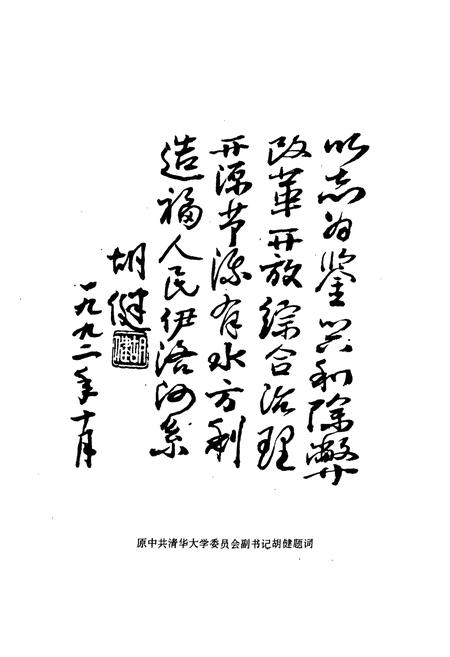 以志为鉴兴利除弊
改革开放综合治理
开源节流有水方利
造福人民伊洛河系
胡健
胡健
一九九二年十月
原中共清华大学委员会副书记胡健题词